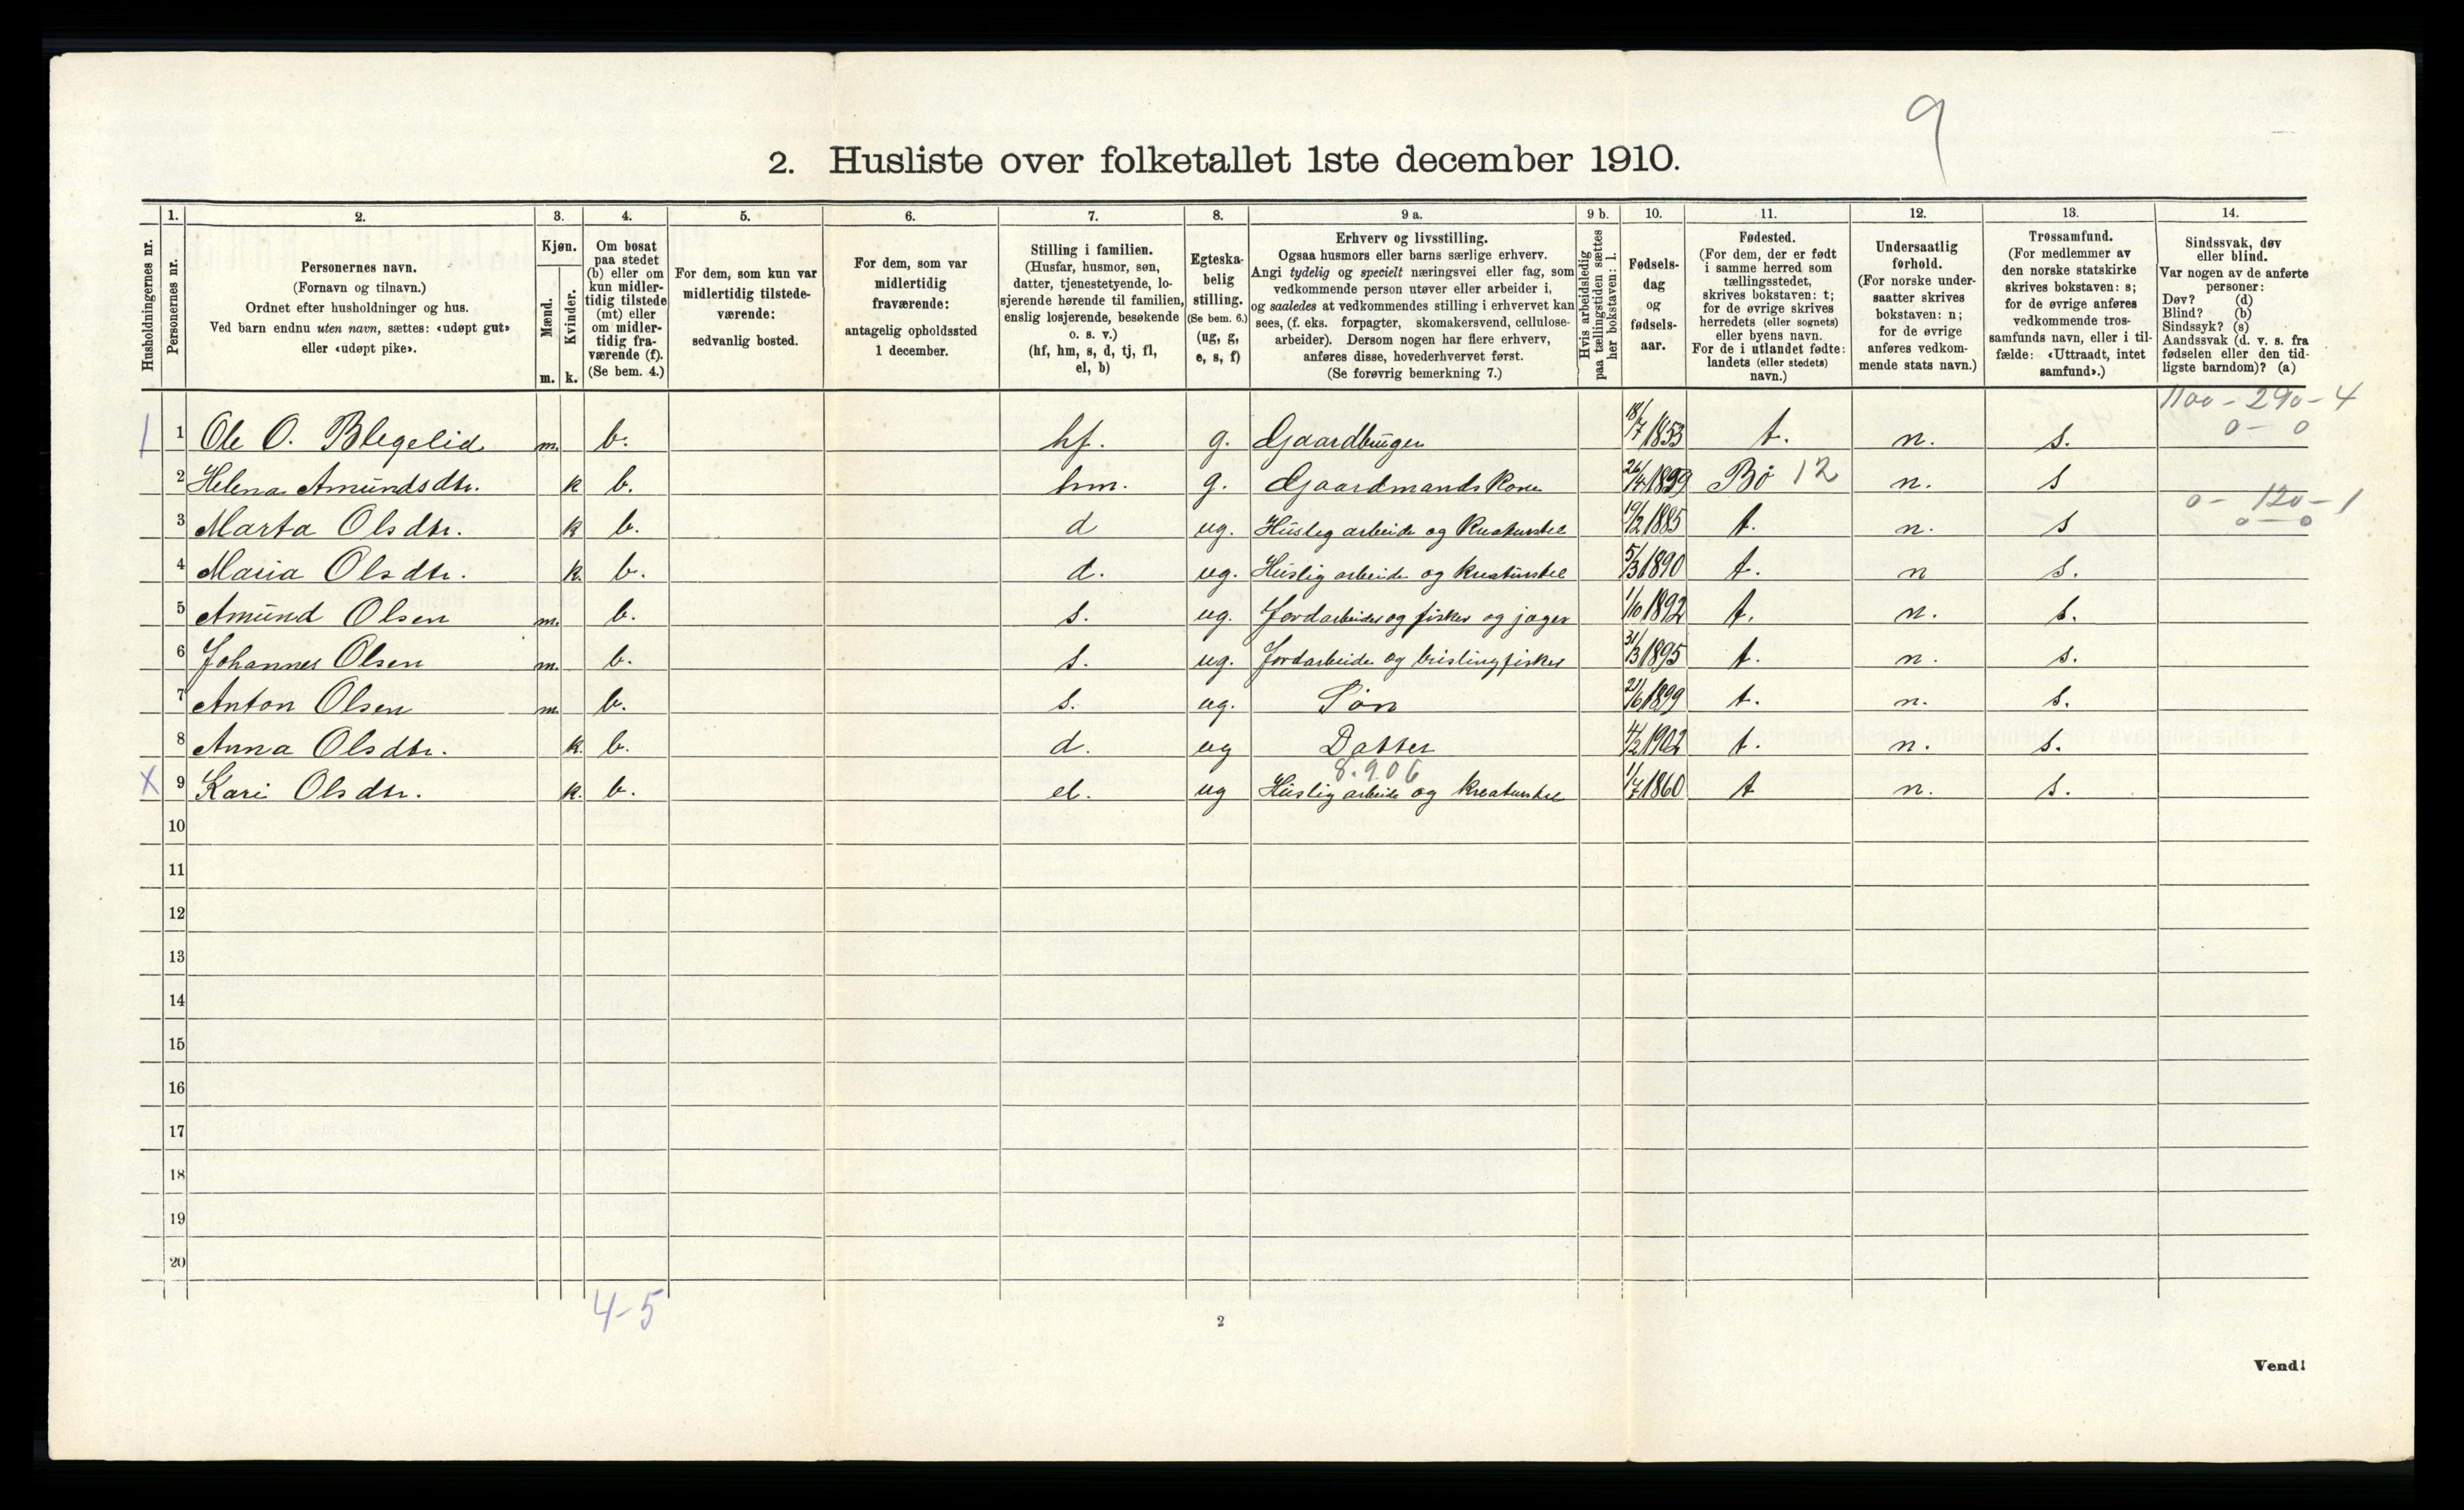 9
2. Husliste over folketallet 1ste december 1910.
Husholdningernes nr.
1. Personernes nr.
2. Personernes navn.
(Fornavn og tilnavn.)
Ordnet efter husholdninger og hus.
Ved barn endnu uten navn, sættes: «udøpt gut»
eller «udøpt pike».
3. Kjøn.
Mænd. m.
Kvinder. k.
4. Om bosat
paa stedet
(b) eller om
kun midler-
tidig tilstede
(mt) eller
om midler-
tidig fra-
værende (f).
(Se bem. 4.)
5. For dem, som kun var
midlertidig tilstede-
værende:
sedvanlig bosted.
6. For dem, som var
midlertidig
fraværende:
antagelig opholdssted
1 december.
7. Stilling i familien.
(Husfar, husmor, søn,
datter, tjenestetyende, lo-
sjerende hørende til familien,
enslig losjerende, besøkende
o. s. v.)
(hf, hm, s, d, tj, fl,
el, b)
8. Egteska-
belig
stilling.
(Se bem. 6.)
(ug, g,
e, s, f)
9 a. Erhverv og livsstilling.
Ogsaa husmors eller barns særlige erhverv.
Angi tydelig og specielt næringsvei eller fag, som
vedkommende person utøver eller arbeider i,
og saaledes at vedkommendes stilling i erhvervet kan
sees, (f. eks. forpagter, skomakersvend, cellulose-
arbeider). Dersom nogen har flere erhverv,
anføres disse, hovederhvervet først.
(Se forøvrig bemerkning 7.)
9 b. Hvis arbeidsledig
paa tællingstiden sættes
her bokstaven: l.
10. Fødsels-
dag
og
fødsels-
aar.
11. Fødested.
(For dem, der er født
i samme herred som
tællingsstedet,
skrives bokstaven: t;
for de øvrige skrives
herredets (eller sognets)
eller byens navn.
For de i utlandet fødte:
landets (eller stedets)
navn.)
12. Undersaatlig
forhold.
(For norske under-
saatter skrives
bokstaven: n;
for de øvrige
anføres vedkom-
mende stats navn.)
13. Trossamfund.
(For medlemmer av
den norske statskirke
skrives bokstaven: s;
for de øvrige anføres
vedkommende tros-
samfunds navn, eller i til-
fælde: «Uttraadt, intet
samfund».)
14. Sindssvak, døv
eller blind.
Var nogen av de anførte
personer:
Døv? (d)
Blind? (b)
Sindssyk? (s)
Aandssvak (d. v. s. fra
fødselen eller den tid-
ligste barndom)? (a)
1100 - 290 - 4
0 - 0
1 Ole O. Blegelid m. b. hf. g. Gaardbruger 18/7 1853 t. n. s.
2 Helena Amundsdtr. k b. hm. g. Gaardmandskone 26/4 1859 Bø 12 n. s
0 - 120 - 1
0 - 0
3 Marta Olsdtr. k b. d ug. Huslig arbeide og kreaturstel 19/2 1885 t. n. s
4 Maria Olsdtr. k. b. d. ug. Huslig arbeide og kreaturstel 5/3 1890 t. n s.
5 Amund Olsen m. b. s. ug. Jordarbeider og fisker og jager 1/10 1892 t. n. s.
6 Johannes Olsen m. b. s. ug. Jordarbeide og brislingfisker 31/3 1895 t. n. s.
7 Anton Olsen m. b. s. ug. Søn 21/6 1899 t. n. s.
8 Anna Olsdtr. k. b. d. ug Datter 4/2 1902 t. n. s.
8.9.06
X 9 Kari Olsdtr. k. b. el. ug Huslig arbeide og kreaturstel 1/7 1860 t n. s.
10
11
12
13
14
15
16
17
18
19
20
4-5
2
Vend!